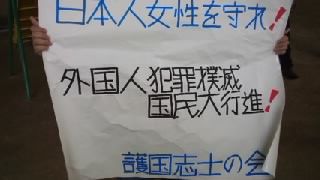 日本人女性を守れ!
外国人犯罪撲滅
国民大行進!
護国志士の会